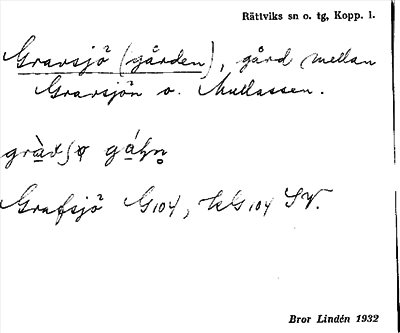 Rättviks sn o. tg, Kopp. l.
Gravsjö (gården), gård mellan
Gravsjön o. Mullassen.
Grafsjö G104, kG104 SV.
Bror Lindén 1932